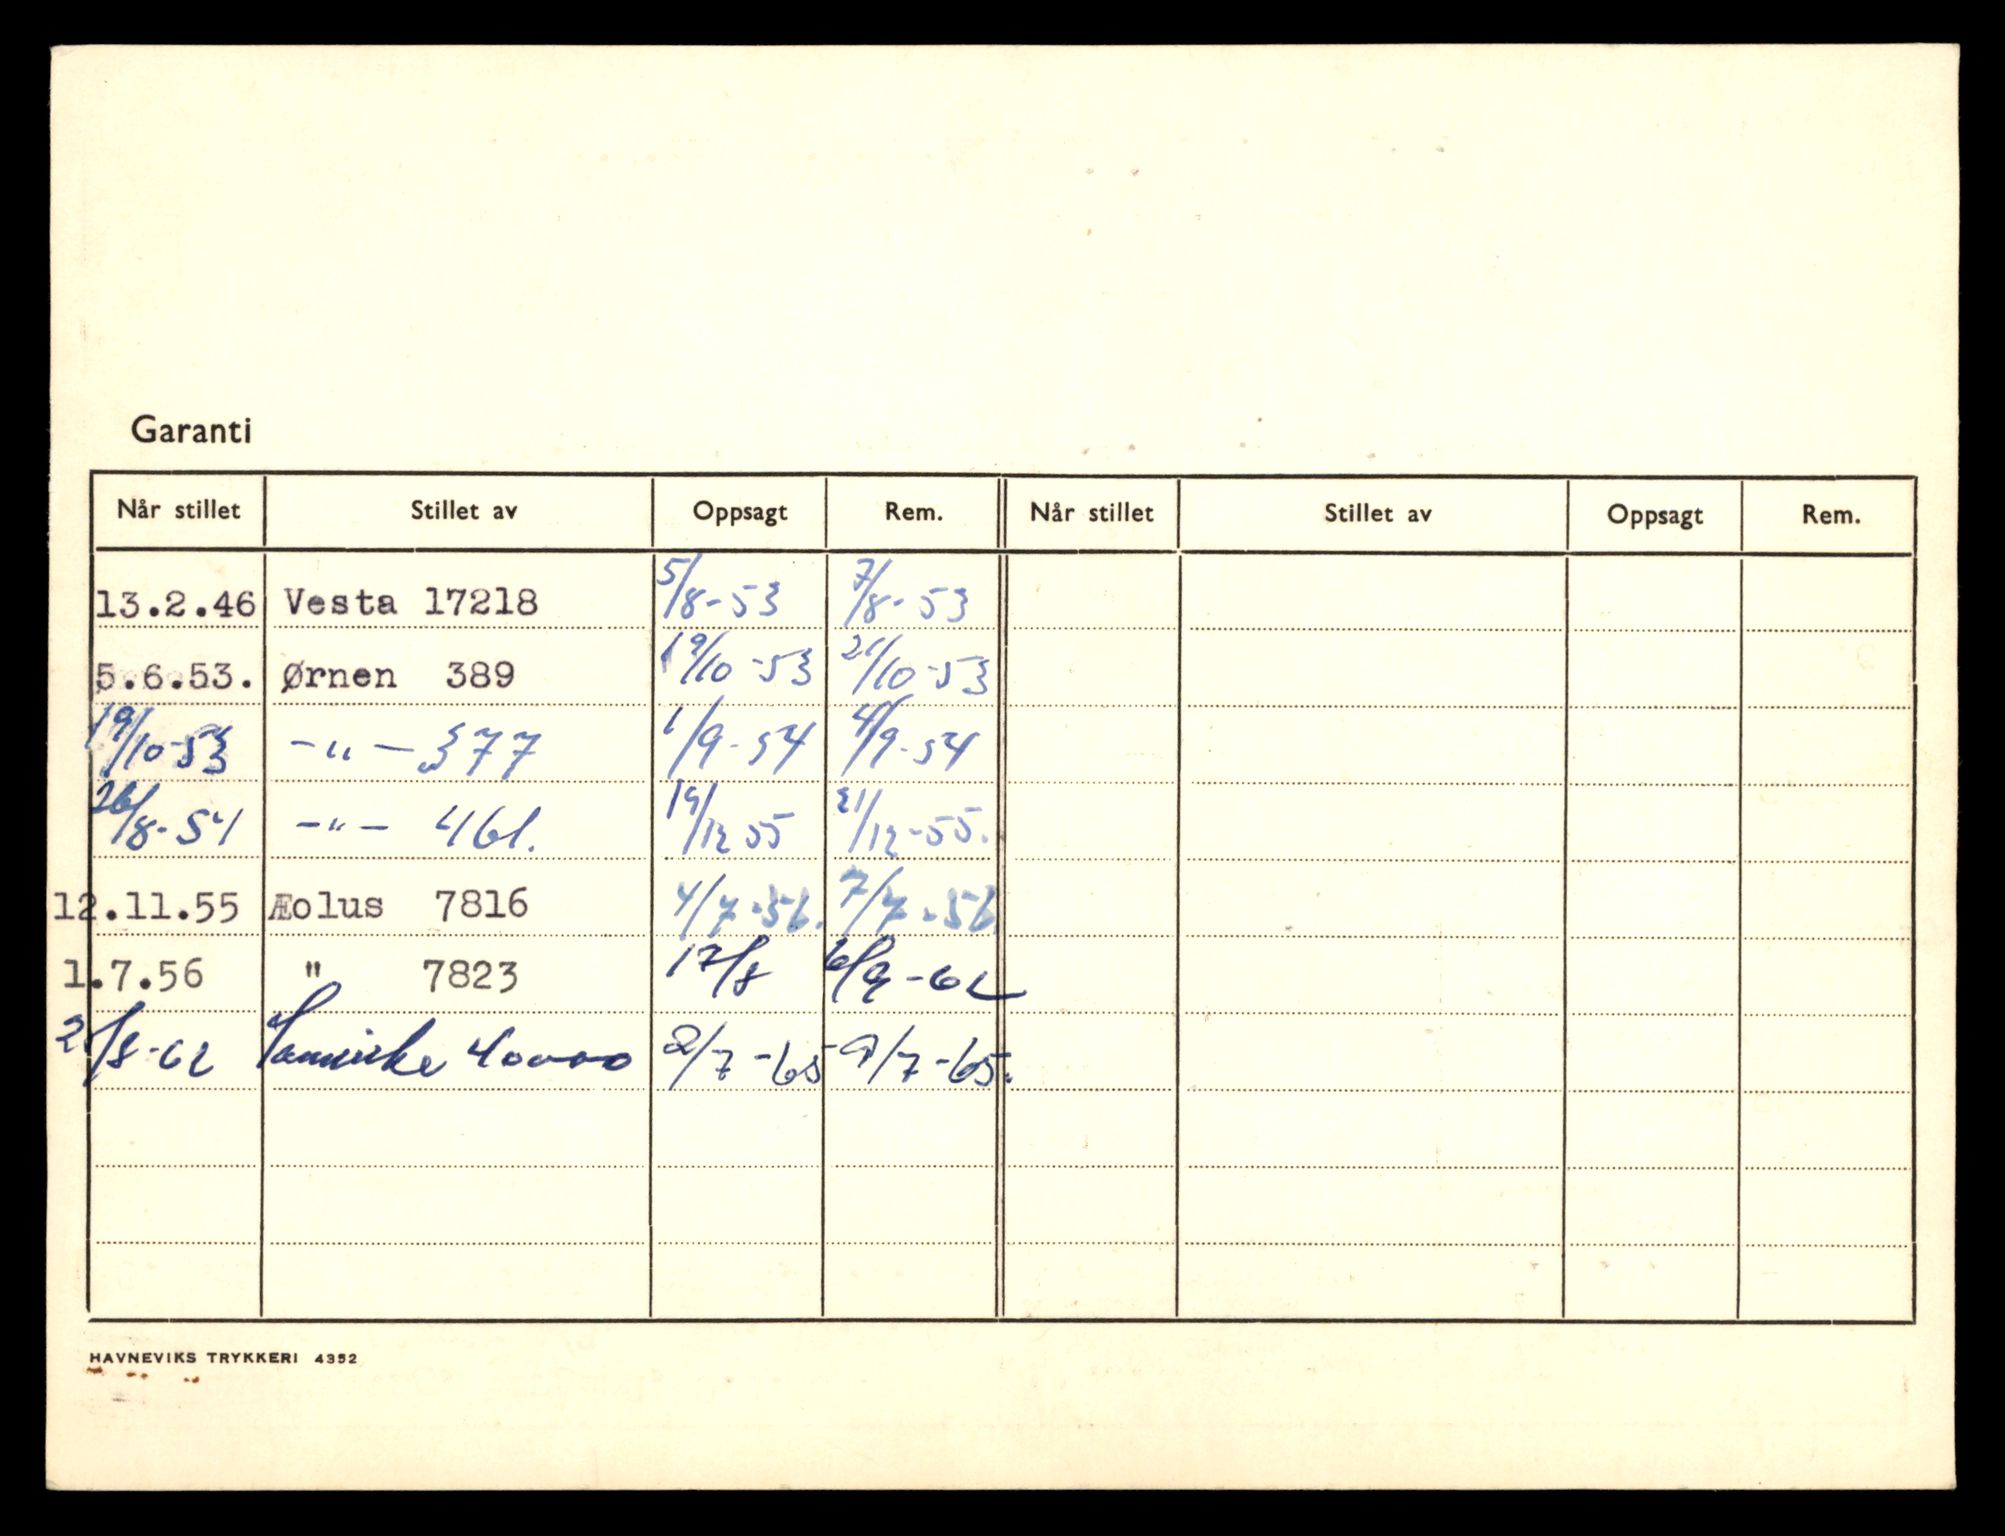 Garanti
Når stillet Stillet av Oppsagt Rem. Når stillet Stillet av Oppsagt Rem.
13.2.46 Vesta 17218 5/8-53 7/8-53
5.6.53. Ørnen 389 19/10-53 21/10-53
19/10-53 -"- 377 1/9-54 4/9-54
26/8-54 -"- 461. 19/12 55 21/12-55.
12.11.55 Æolus 7816 4/7-56. 7/7-56.
1.7.56 " 7823 17/8 6/9-62
2/8-62 Samvirke 40000 2/7-65 9/7-65.
HAVNEVIKS TRYKKERI 4352